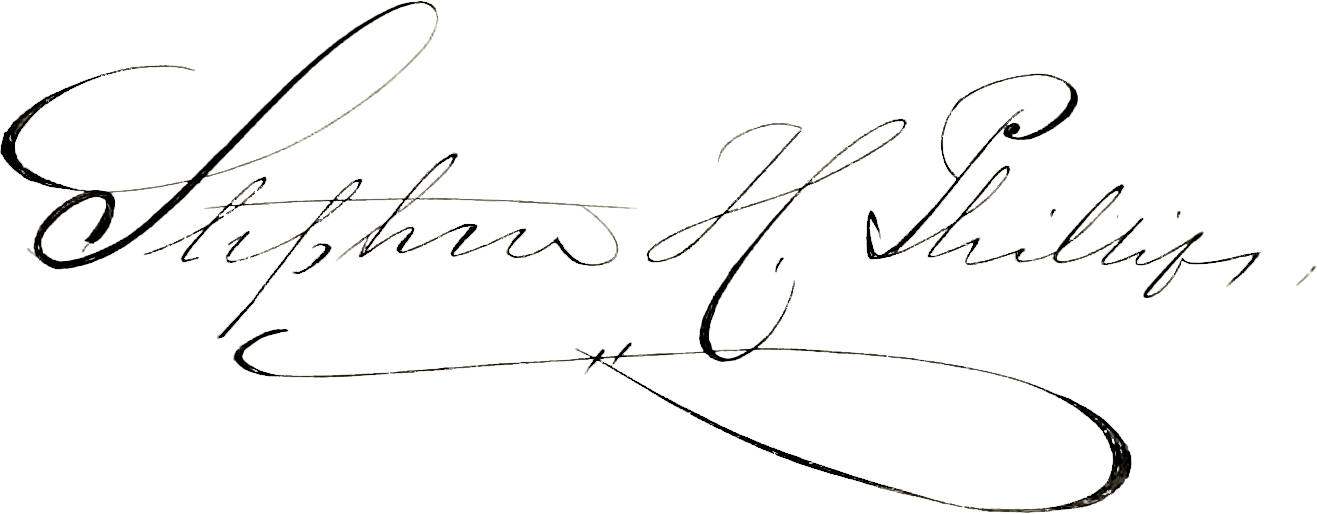 Stephen H. Phillips.